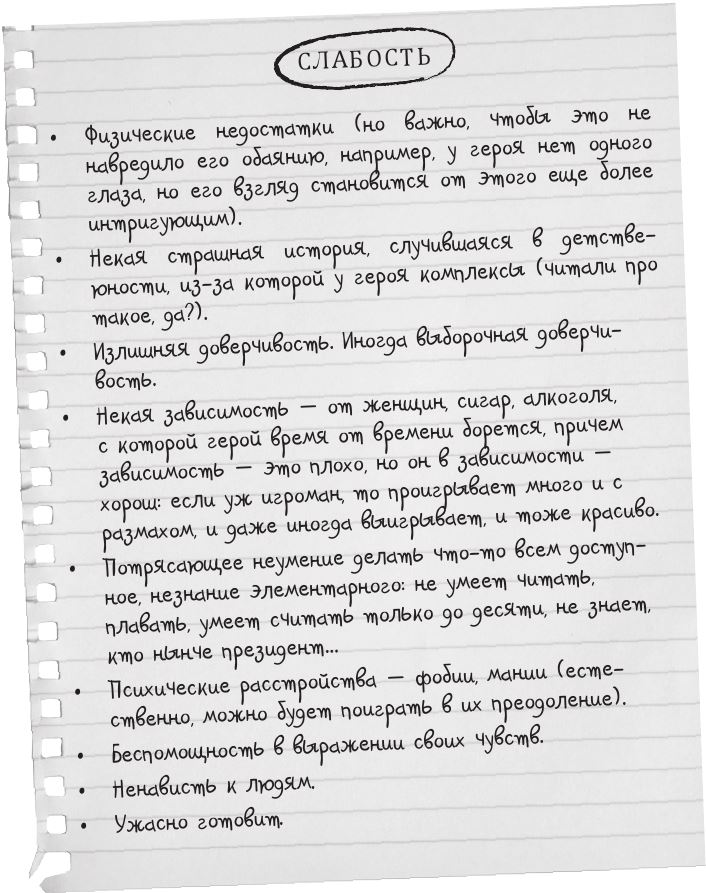 СЛАБОСТЬ
• Физические недостатки (но важно, чтобы это не
навредило его обаянию, например, у героя нет одного
глаза, но его взгляд становится от этого еще более
интригующим).
• Некая страшная история, случившаяся в детстве-
юности, из-за которой у героя комплексы (читали про
такое, да?).
• Излишняя доверчивость. Иногда выборочная доверчи-
вость.
• Некая зависимость — от женщин, сигар, алкоголя,
с которой герой время от времени борется, причем
зависимость — это плохо, но он в зависимости —
хорош: если уж игроман, то проигрывает много и с
размахом, и даже иногда выигрывает, и тоже красиво.
• Потрясающее неумение делать что-то всем доступ-
ное, незнание элементарного: не умеет читать,
плавать, умеет считать только до десяти, не знает,
кто нынче президент...
• Психические расстройства — фобии, мании (есте-
ственно, можно будет поиграть в их преодоление).
• Беспомощность в выражении своих чувств.
• Ненависть к людям.
• Ужасно готовит.